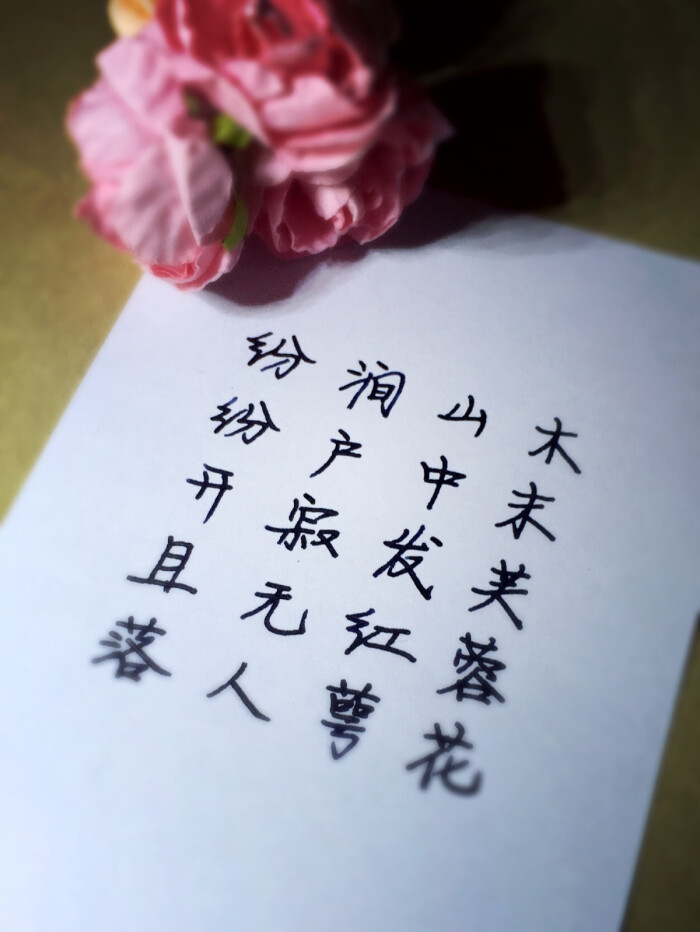 木末芙蓉花
山中发红萼
涧户寂无人
纷纷开且落